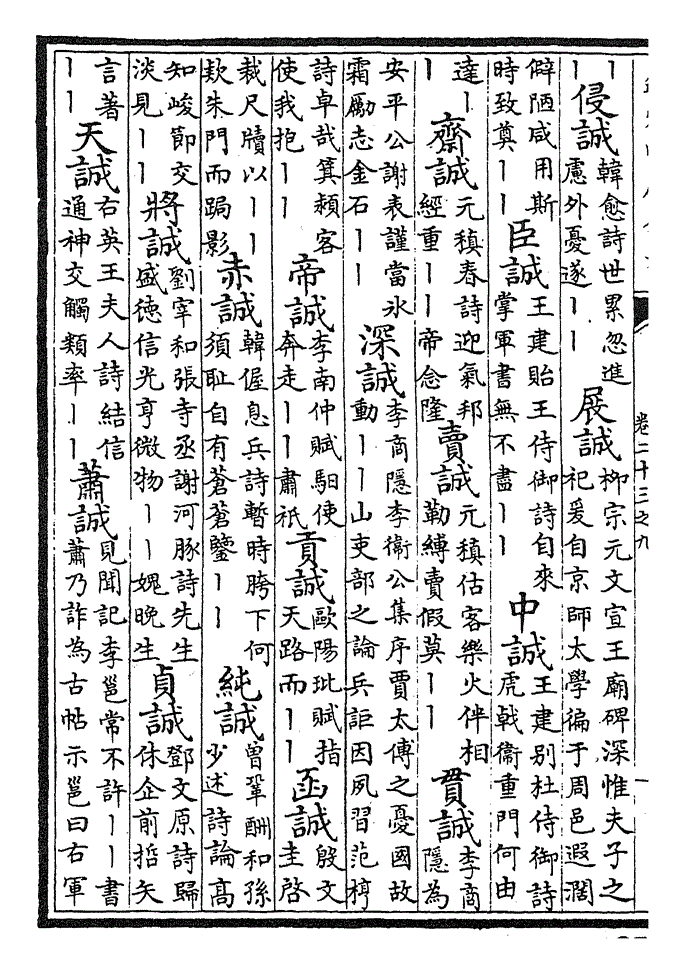 丨侵誠韓愈詩世累忽進慮外憂遂丨丨展誠柳宗元文宣王廟碑深惟夫子之祀爰自京師太學徧于周邑遐濶
僻陋咸用斯時致奠丨丨臣誠王建貽王侍御詩自來掌軍書無不盡丨丨中誠王建別杜侍御詩虎戟衞重門何由
達丨丨齋誠元稹春詩迎氣邦經重丨丨帝念隆賣誠元稹估客樂火伴相勒縛賣假莫丨丨貫誠李商隱為
安平公謝表謹當氷霜厲志金石丨丨深誠李商隱李衞公集序賈太傅之憂國故動丨丨山吏部之論兵詎因夙習范梈
詩卓哉箕潁客使我抱丨丨帝誠李南仲賦馹使奔走丨丨肅祇貢誠歐陽玭賦指天路而丨丨函誠殷文圭啓
裁尺牘以丨丨欵朱門而跼影赤誠韓偓息兵詩暫時胯下何須耻自有蒼蒼鑒丨丨純誠曾鞏酬和孫少述詩論高
知峻節交淡見丨丨將誠劉宰和張寺丞謝河豚詩先生盛德信光亨微物丨丨媿晚生貞誠鄧文原詩歸休企前哲矢
言著丨丨天誠右英王夫人詩結信通神交觸類率丨丨蕭誠見聞記李邕常不許丨丨書蕭乃詐為古帖示邕曰右軍
卷二十三之九